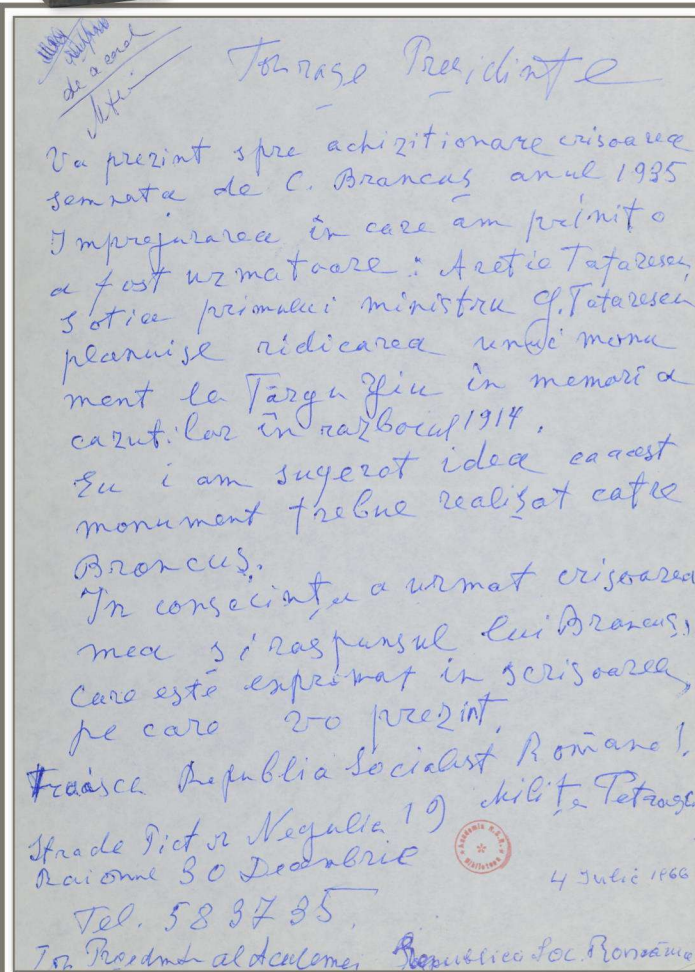 de acord
Tovarase Presidinte
Va prezint spre achizitionare crisoarea
semnata de C. Brancuș anul 1935
Imprejurarea în care am primit o
a fost urmatoare : Aretie Tatarescu
sotia primului ministru G. Tatarescu
planuise ridicarea unui monu
ment la Târgu Yiu în memoria
cazutilor în razboiul 1914.
Eu i am sugerat idea ca acest
monument trebue realisat catre
Brancuș.
In consecința a urmat crisoarea
mea si raspunsul lui Brancuș,
care este exprimat in scrisoarea,
pe care v-o prezint.
Traiasca Republia Socialist Romane!
Milița Petrașcu
Strade Pictor Negulia 19
Raionne 30 Decembrie
Academia R.S.R. * Biblioteca
4 Iulie 1966
Tel. 58 37 35.
Tov Presedinte al Academei Republica Soc. România